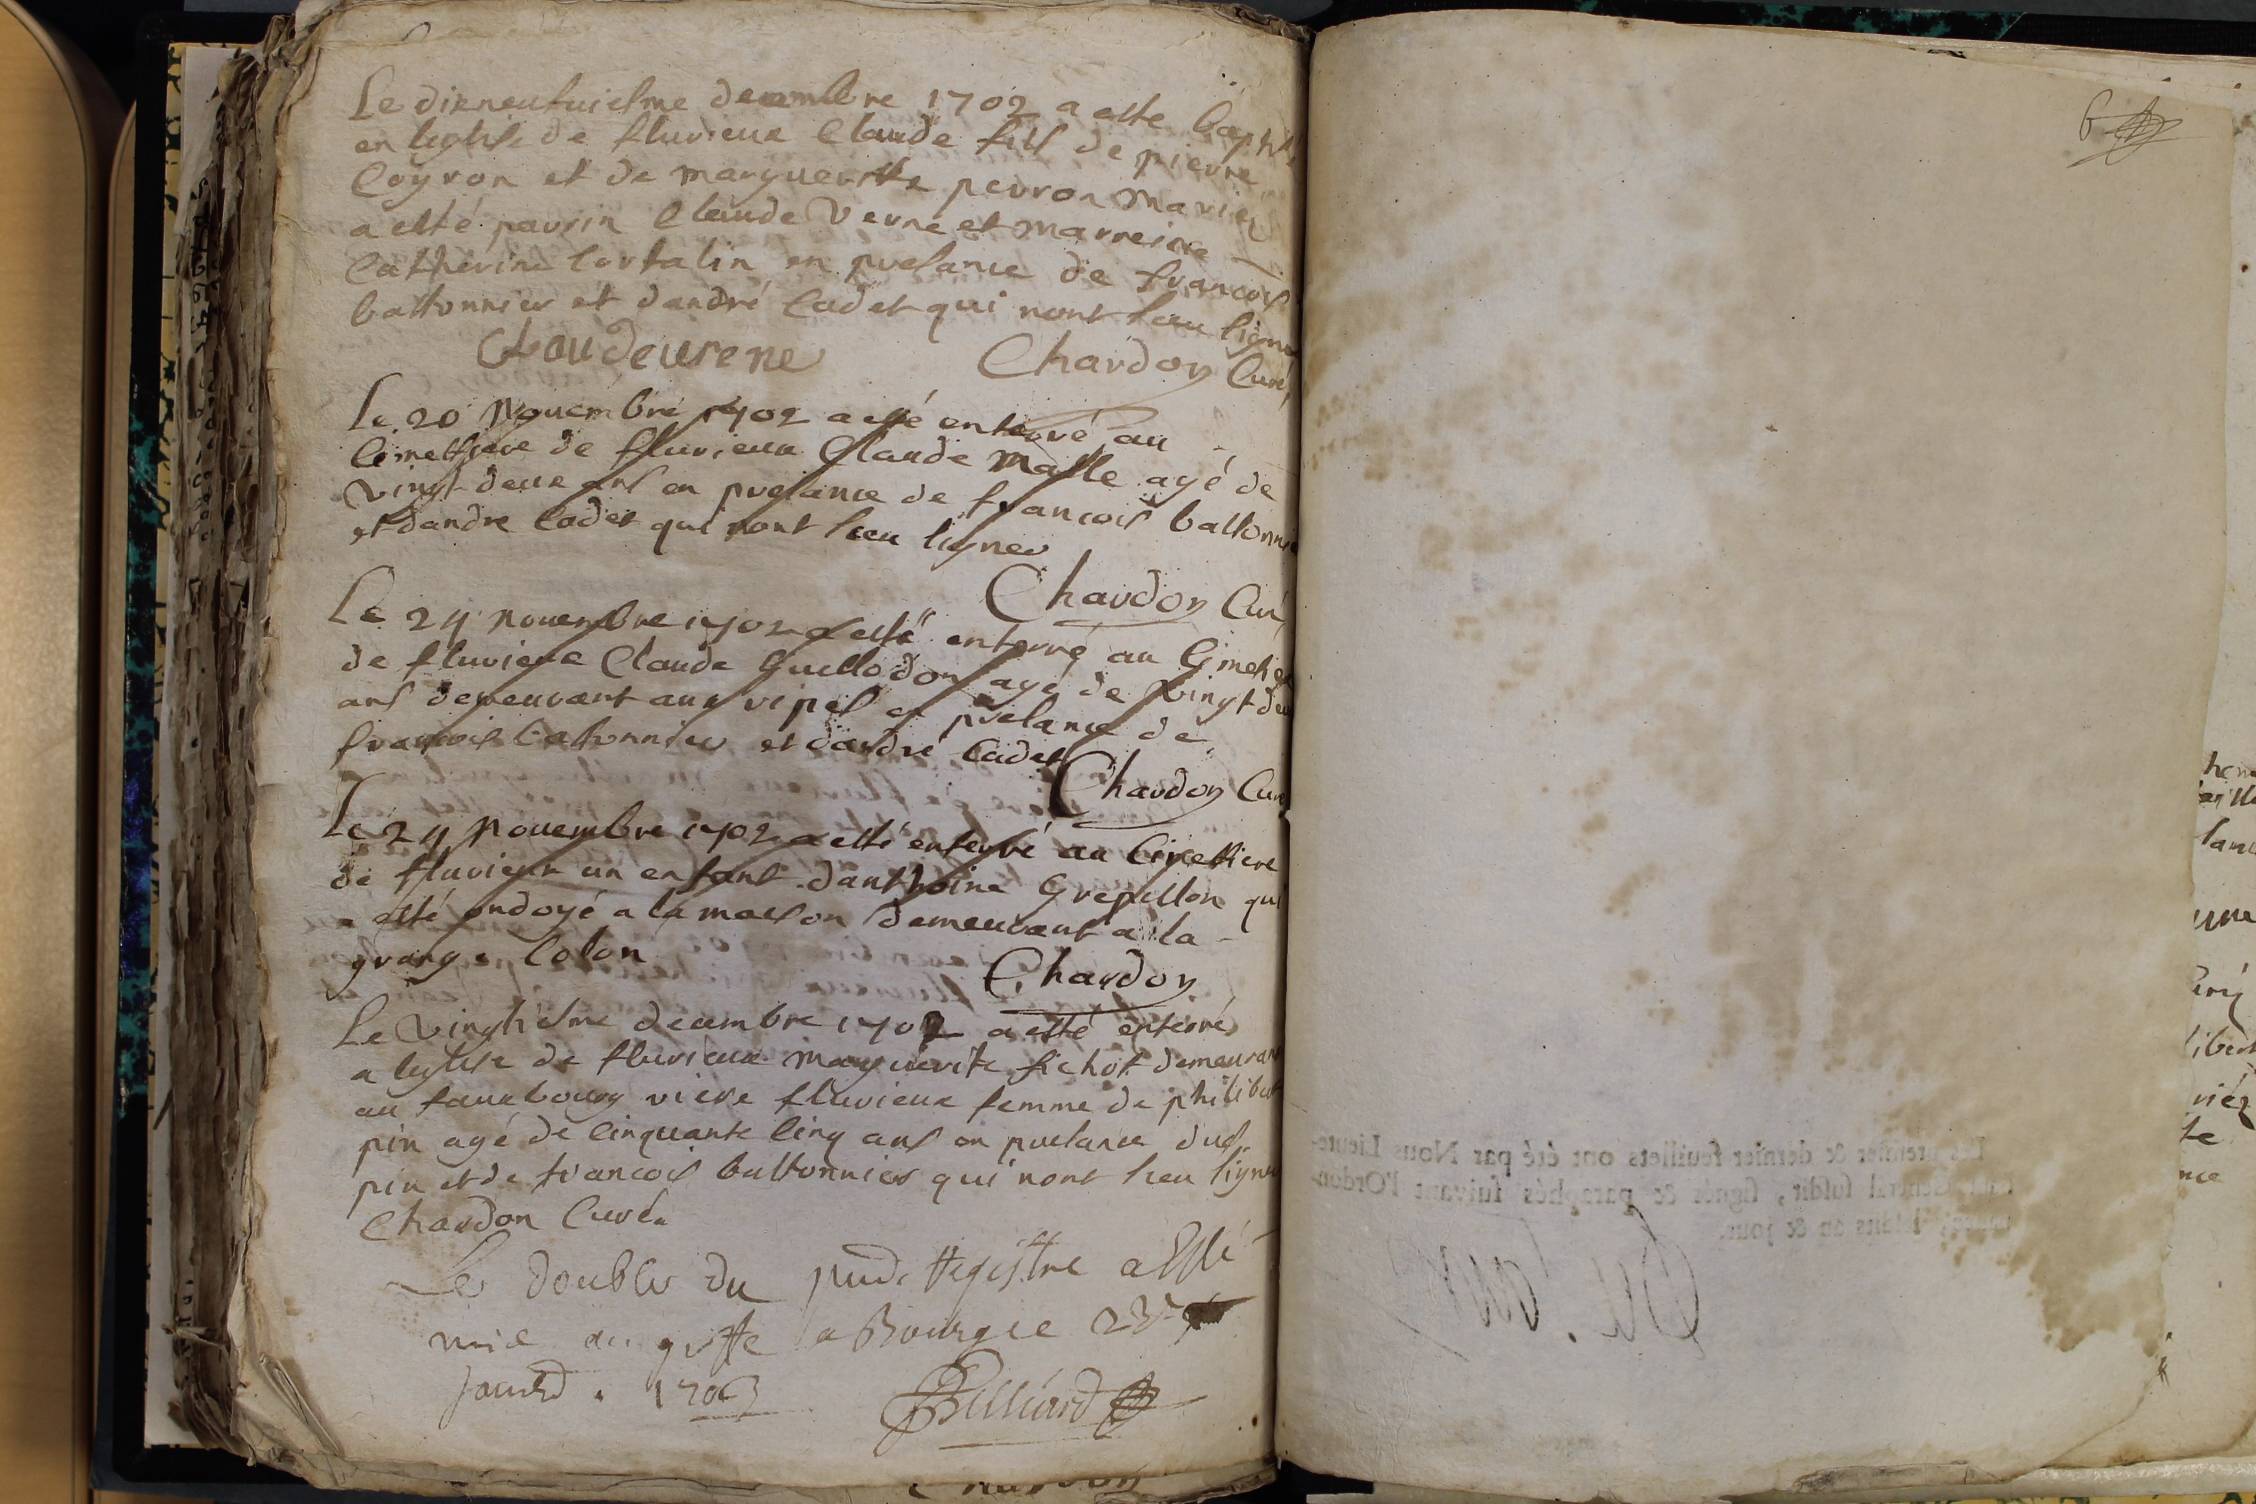 Le dixneufuiesme decembre 1702 a esté baptisé
en leglise de fluvieux Claude fils de pierre
Coyron et de margueritte perron Mariez
a esté parrin Claude Verne et marreine
Catherine Cortalin en presance de francois
battonnier et dandré Cadet qui nont sceu signer
Claudeverne Chardon Curé
Le 20 Nouembre 1702 a esté enterré au
Cimettiere de fluvieux Claude Masle agé de
vingt deux ans en presance de francois battonnier
et dandre Cadet qui nont sceu signer
Chardon Curé
Le 24 nouembre 1702 a esté enterré au Cimetiere
de fluvieux Claude Guillodon agé de vingt deux
ans demeurant aux ripes en presance de
francois battonnier et dandré Cadet
Chardon Curé
Le 24 Nouembre 1702 a esté enterré au Cimettiere
de fluvieux un enfant danthoine Grepillon qui
a esté ondoyé a la maison demeurant a la
grange Colon
Chardon
Le vingtiesme decembre 1702 a esté enterré
a leglise de fluvieux marguerite fichot demeurant
au fauxbourg viere fluvieux femme de philibert
pin agé de cinquante cinq ans en presance dud.
pin et de francois battonnier qui nont sceu signer
Chardon Curé.
Les doubles du pnd. Registre a Esté
mis au greffe a Bourgce 23e
Janvd. 1703 Billiard
6
Les premier & dernier feuillets ont été par Nous Lieute-
nant General susdit, signés & paraphés suivant l'Ordon-
nance, lesdits an & jour.